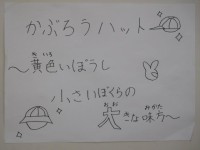 かぶろうハット
～黄色いぼうし
小さいぼくらの
大きな味方～